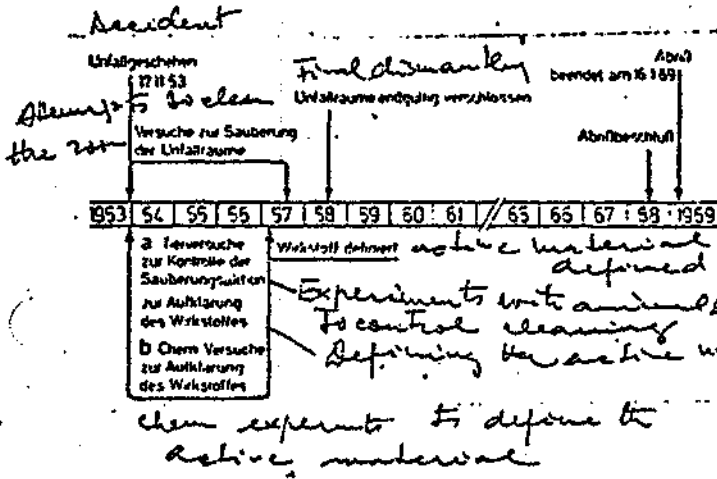 Accident
Unfallgeschehen
17 11 53
Attempts to clean
the room
Versuche zur Sauberung
der Unfallraume
Final dismantling
Unfallraume endgultig verschlossen
Abriß
beendet am 16 1 69
Abrißbeschluß
1953 54 55 56 57 58 59 60 61 65 66 67 68 1969
a Tierversuche
zur Kontrolle der
Sauberungsaktion
zur Aufklarung
des Wirkstoffes
b Chem Versuche
zur Aufklarung
des Wirkstoffes
Wirkstoff definiert
active material
defined
Experiments with animals
To control cleaning
Defining the active
chem experments to define the
active material